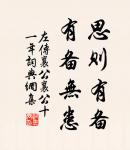 思則有备
有备無患
左傳襄公襄公十
一年詞典網集